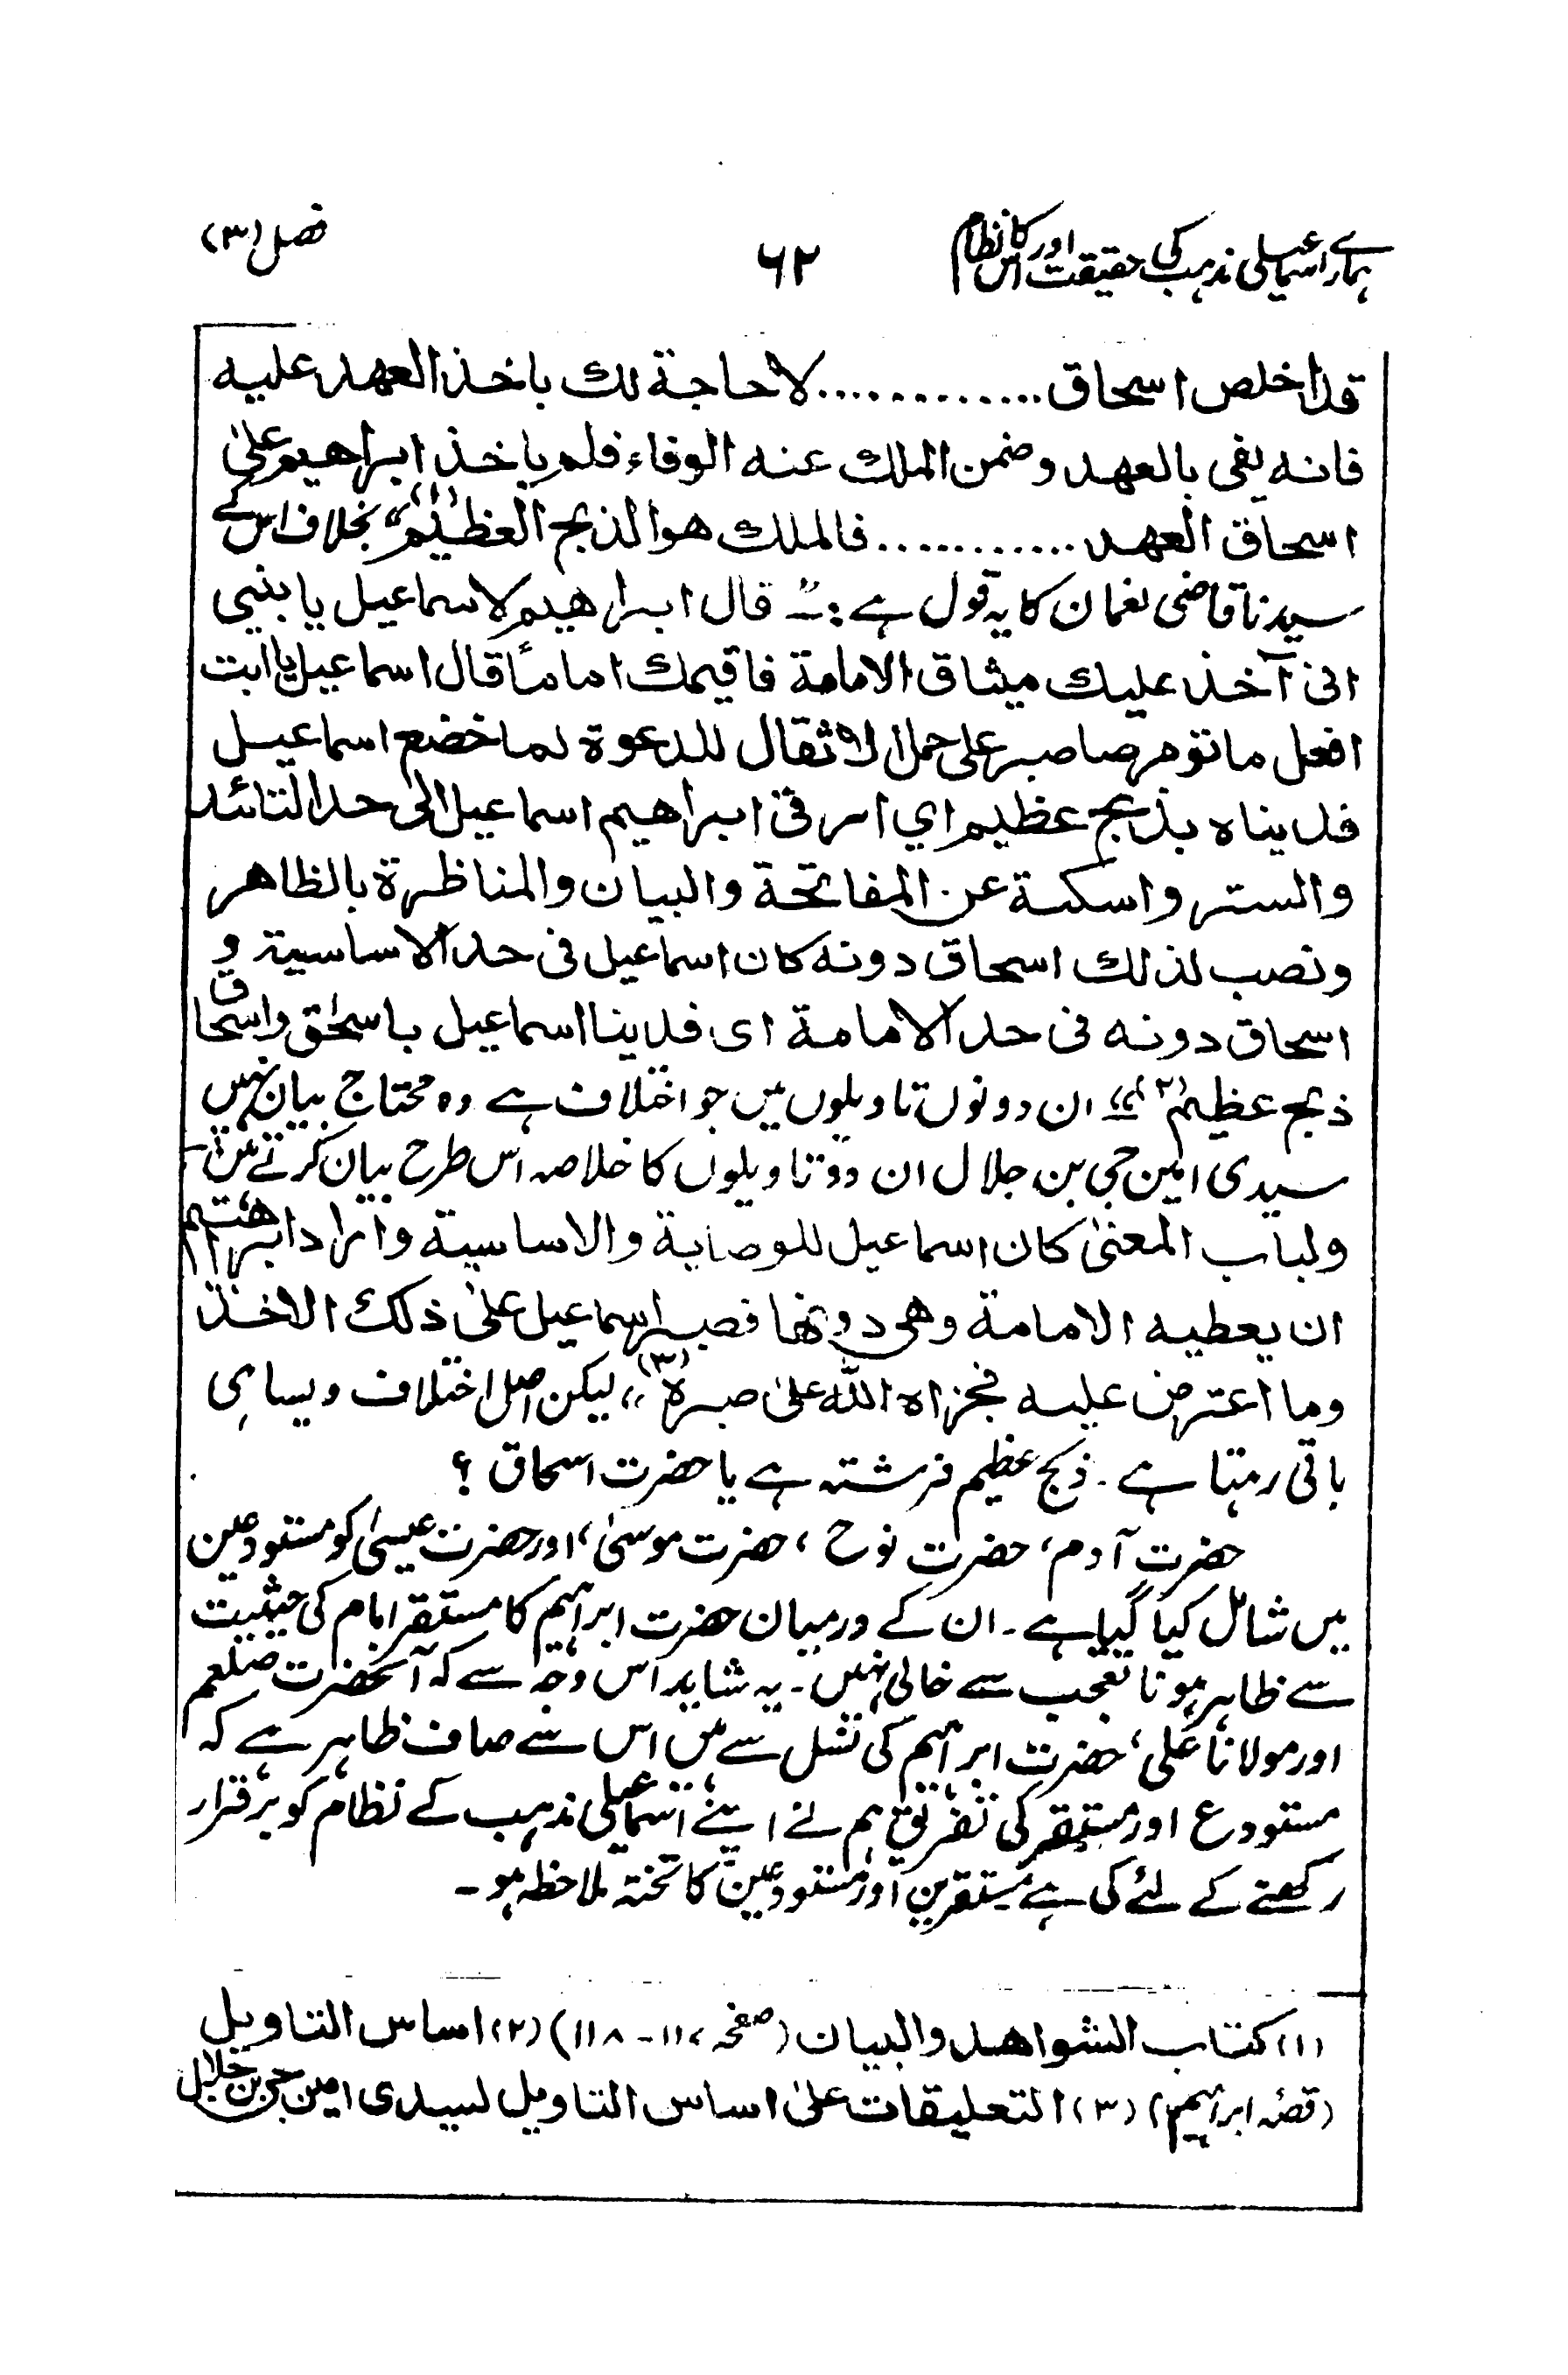 ہمارے اسماعیلی مذہب کی حقیقت اور اس کا نظام ۶۲ فصل (۳)
قد اخلص اسحاق ............ لا حاجة لك باخذ العهد عليه
فانه يفى بالعهد وضمن الملك عنه الوفاء فلم ياخذ ابراهيم على
اسحاق العهد ............ فالملك هو الذبح العظيم (۱)" بخلاف اس کے
سیدنا قاضی نعمان کا یہ قول ہے :- " قال ابراهيم لاسماعيل يا بني
انى آخذ عليك ميثاق الامامة فاقيمك اماماً قال اسماعيل يا ابت
افعل ما تؤمر صابر على حمل الاثقال للدعوة لما خضع اسماعيل
فديناه بذبح عظيم اي ارقى ابراهيم اسماعيل الى حد التائد
والستر واسكتة عن المفاتحة والبيان والمناظرة بالظاهر
ونصب لذلك اسحاق دونه كان اسماعيل فى حد الاساسية و
اسحاق دونه فى حد الامامة اى فدينا اسماعيل باسحق واسحاق
ذبح عظيم (۲)" ان دونوں تاویلوں میں جو اختلاف ہے وہ محتاج بیان نہیں
سیدی امین جی بن جلال ان دو تاویلوں کا خلاصہ اس طرح بیان کرتے ہیں۔
ولباب المعنىٰ كان اسماعيل للوصاية والاساسية واراد ابراهيم
ان يعطيه الامامة وهى دونها فصبر اسماعيل على ذلك الاخذ
وما اعترض عليه فجزاه الله على صبره (۳)" لیکن اصل اختلاف ویسا ہی
باقی رہتا ہے ۔ ذبح عظیم فرشتہ ہے یا حضرت اسحاق ؟
حضرت آدم، حضرت نوح ، حضرت موسیٰ، اور حضرت عیسیٰ کو مستودعین
میں شامل کیا گیا ہے ۔ ان کے درمیان حضرت ابراہیم کا مستقر امام کی حیثیت
سے ظاہر ہونا تعجب سے خالی نہیں ۔ یہ شاید اس وجہ سے کہ آنحضرت صلعم
اور مولانا علی، حضرت ابراہیم کی نسل سے ہیں اس سے صاف ظاہر ہے کہ
مستودع اور مستقر کی تفریق ہم نے اپنے اسماعیلی مذہب کے نظام کو برقرار
رکھنے کے لئے کی ہے مستقرین اور مستودعین کا تختہ ملاحظہ ہو ۔
(۱) كتاب الشواهد والبيان (صفحہ ۱۱۷ - ۱۱۸) (۲) اساس التاويل
(قصہ ابراہیم) (۳) التعليقات على اساس التاويل لسيدى امين جى بن جلال